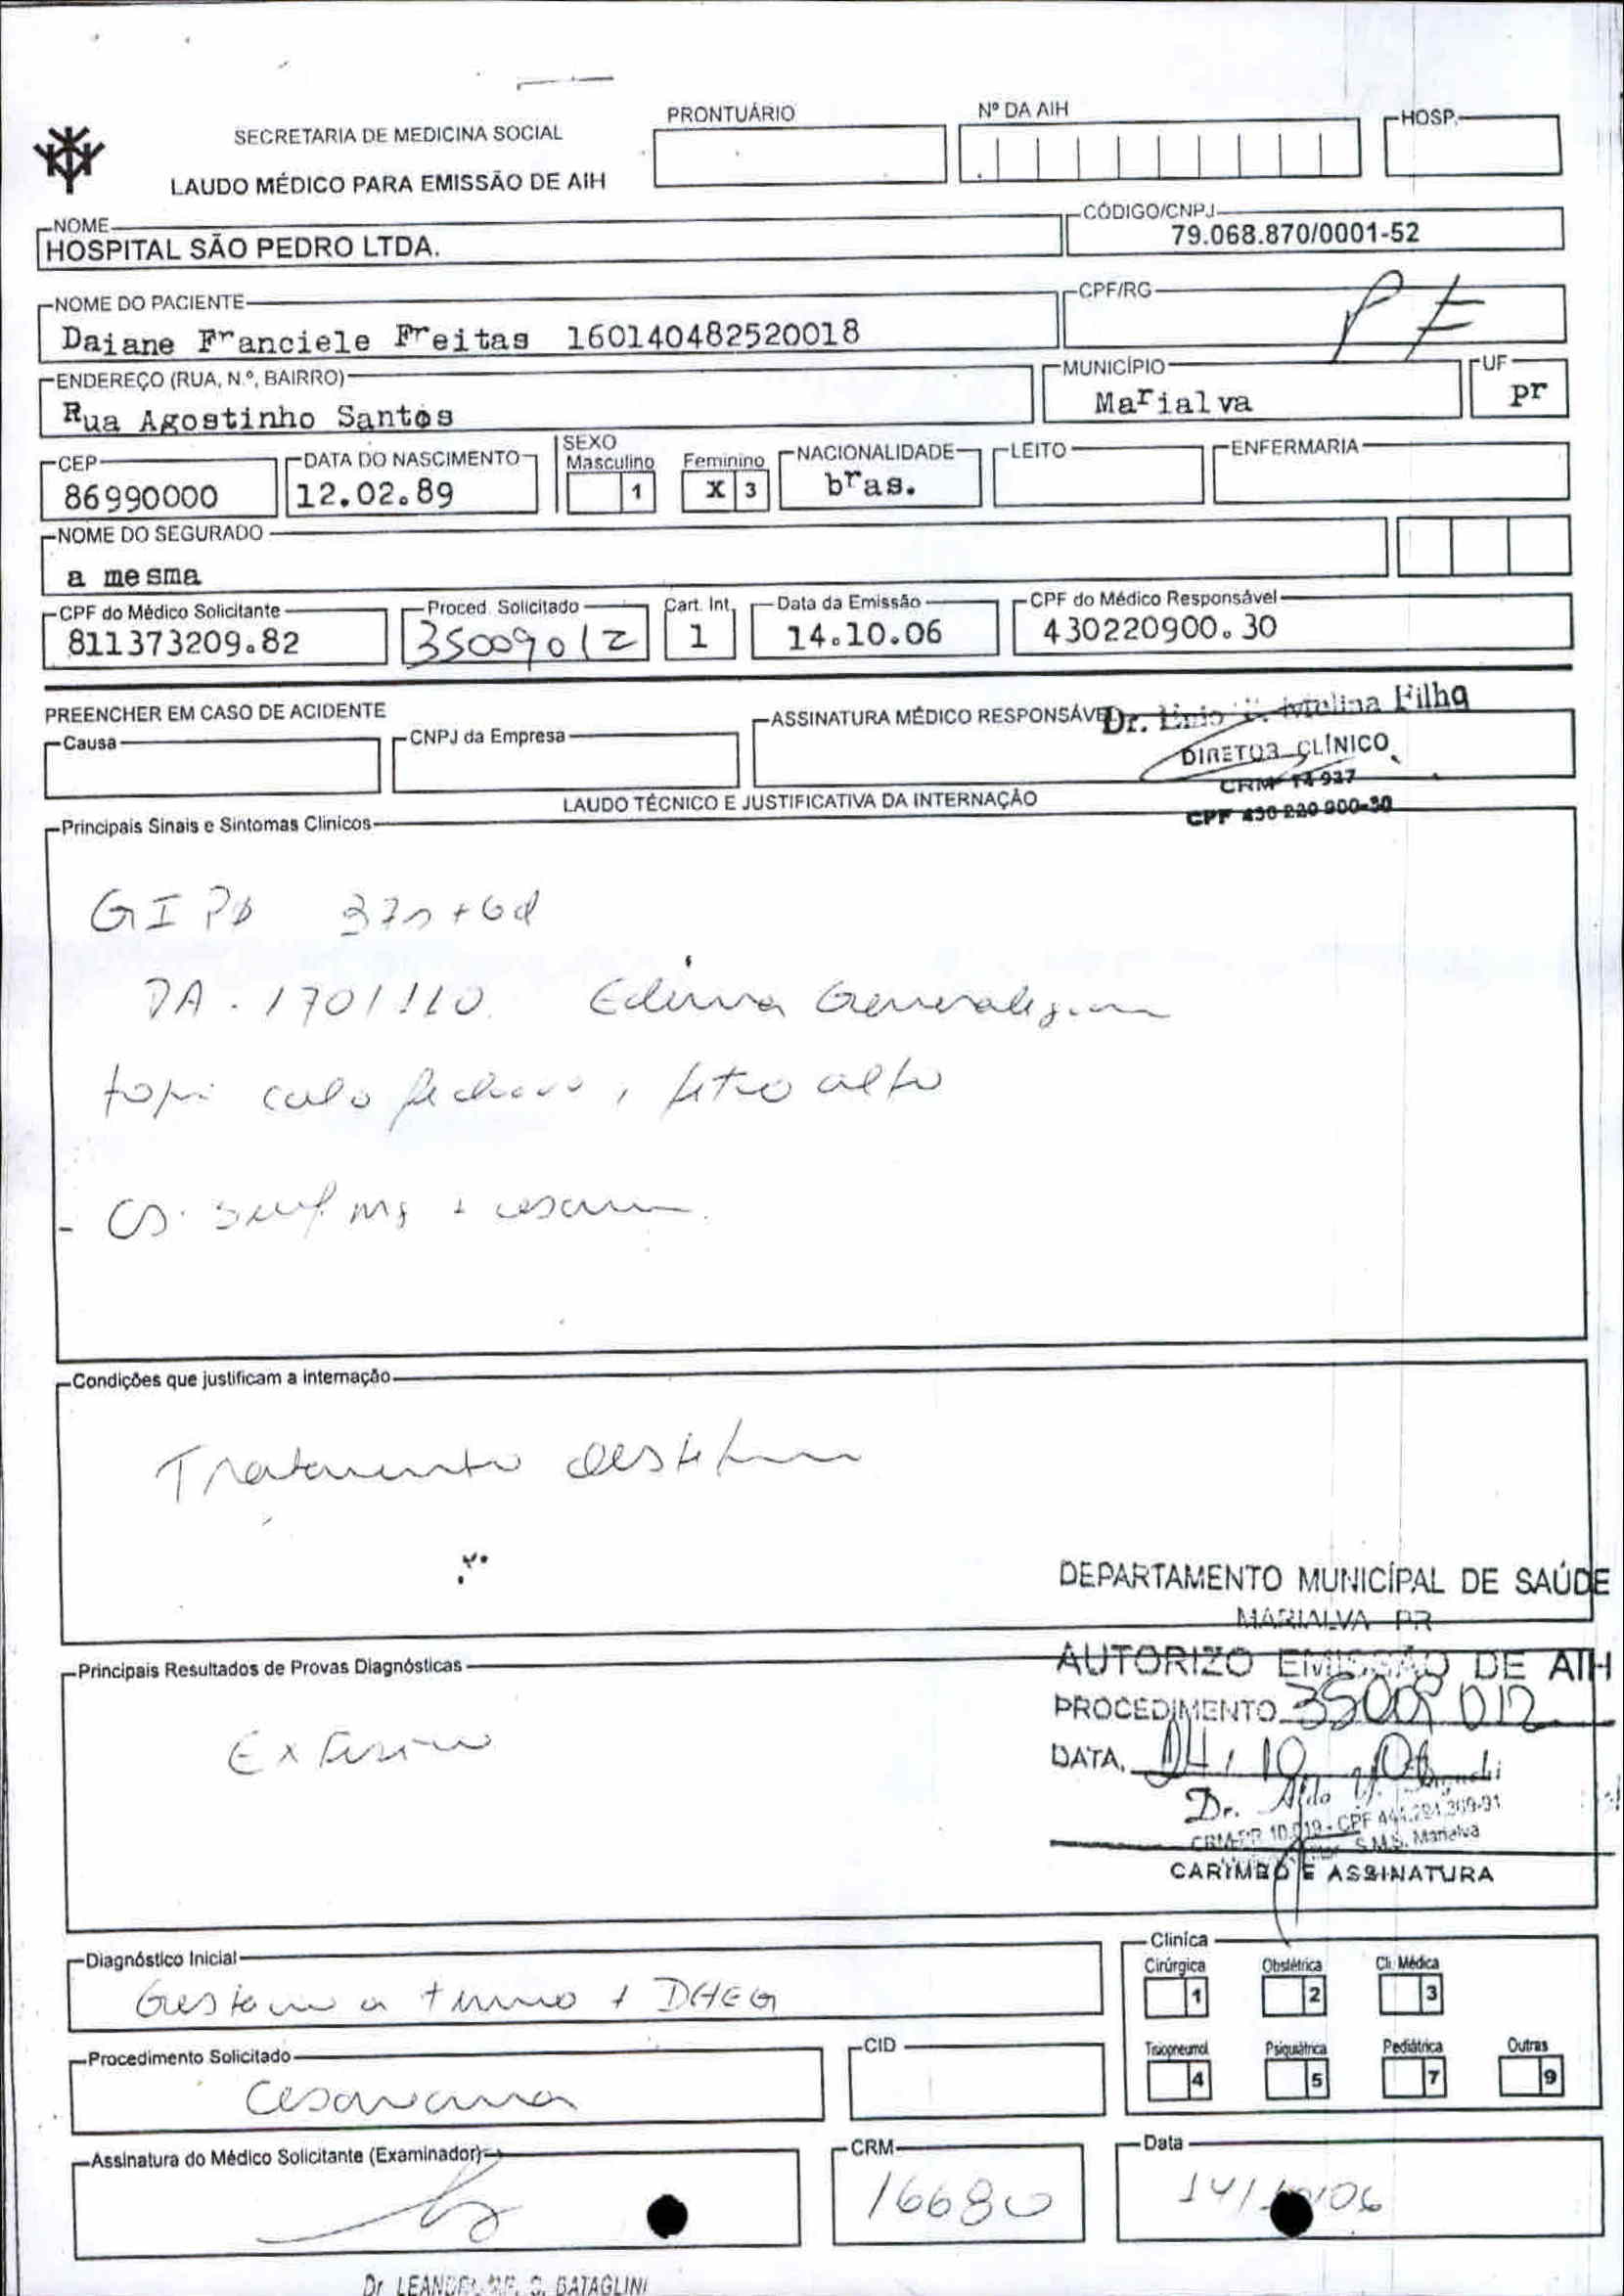 PRONTUÁRIO
Nº DA AIH
HOSP.
SECRETARIA DE MEDICINA SOCIAL
LAUDO MÉDICO PARA EMISSÃO DE AIH
NOME
HOSPITAL SÃO PEDRO LTDA.
CÓDIGO/CNPJ
79.068.870/0001-52
NOME DO PACIENTE
Daiane Franciele Freitas 160140482520018
CPF/RG
PF
ENDEREÇO (RUA, N.º, BAIRRO)
Rua Agostinho Santos
MUNICÍPIO
Marialva
UF
pr
CEP
86990000
DATA DO NASCIMENTO
12.02.89
SEXO
Masculino 1
Feminino X 3
NACIONALIDADE
bras.
LEITO
ENFERMARIA
NOME DO SEGURADO
a mesma
CPF do Médico Solicitante
811373209.82
Proced. Solicitado
35009012
Cart. Int.
1
Data da Emissão
14.10.06
CPF do Médico Responsável
430220900.30
PREENCHER EM CASO DE ACIDENTE
Causa
CNPJ da Empresa
ASSINATURA MÉDICO RESPONSÁVEL
Dr. Molina Filho
DIRETOR CLÍNICO
CRM 14 937
CPF 430 220 900-30
LAUDO TÉCNICO E JUSTIFICATIVA DA INTERNAÇÃO
Principais Sinais e Sintomas Clinicos
GI PØ 37s+6d
PA. 170/110. Edema
colo fechado, feto alto
CD. Sulf Mg + cesarea
Condições que justificam a internação
Tratamento
Principais Resultados de Provas Diagnósticas
Ex
DEPARTAMENTO MUNICÍPAL DE SAÚDE
MARIALVA PR
AUTORIZO EMISSÃO DE AIH
PROCEDIMENTO 35009012
DATA. 14/10/06
Dr. Aldo
CRM-PR 10.019 - CPF 441.291.309-91
S.M.S. Marialva
CARIMBO E ASSINATURA
Diagnóstico Inicial
Gestação a termo + DHEG
Procedimento Solicitado
Cesariana
CID
Clínica
Cirúrgica 1
Obstétrica 2
Cli. Médica 3
Tisiopneumol. 4
Psiquiátrica 5
Pediátrica 7
Outras 9
Assinatura do Médico Solicitante (Examinador)
CRM
16680
Data
14/10/06
Dr. S. BATAGLINI